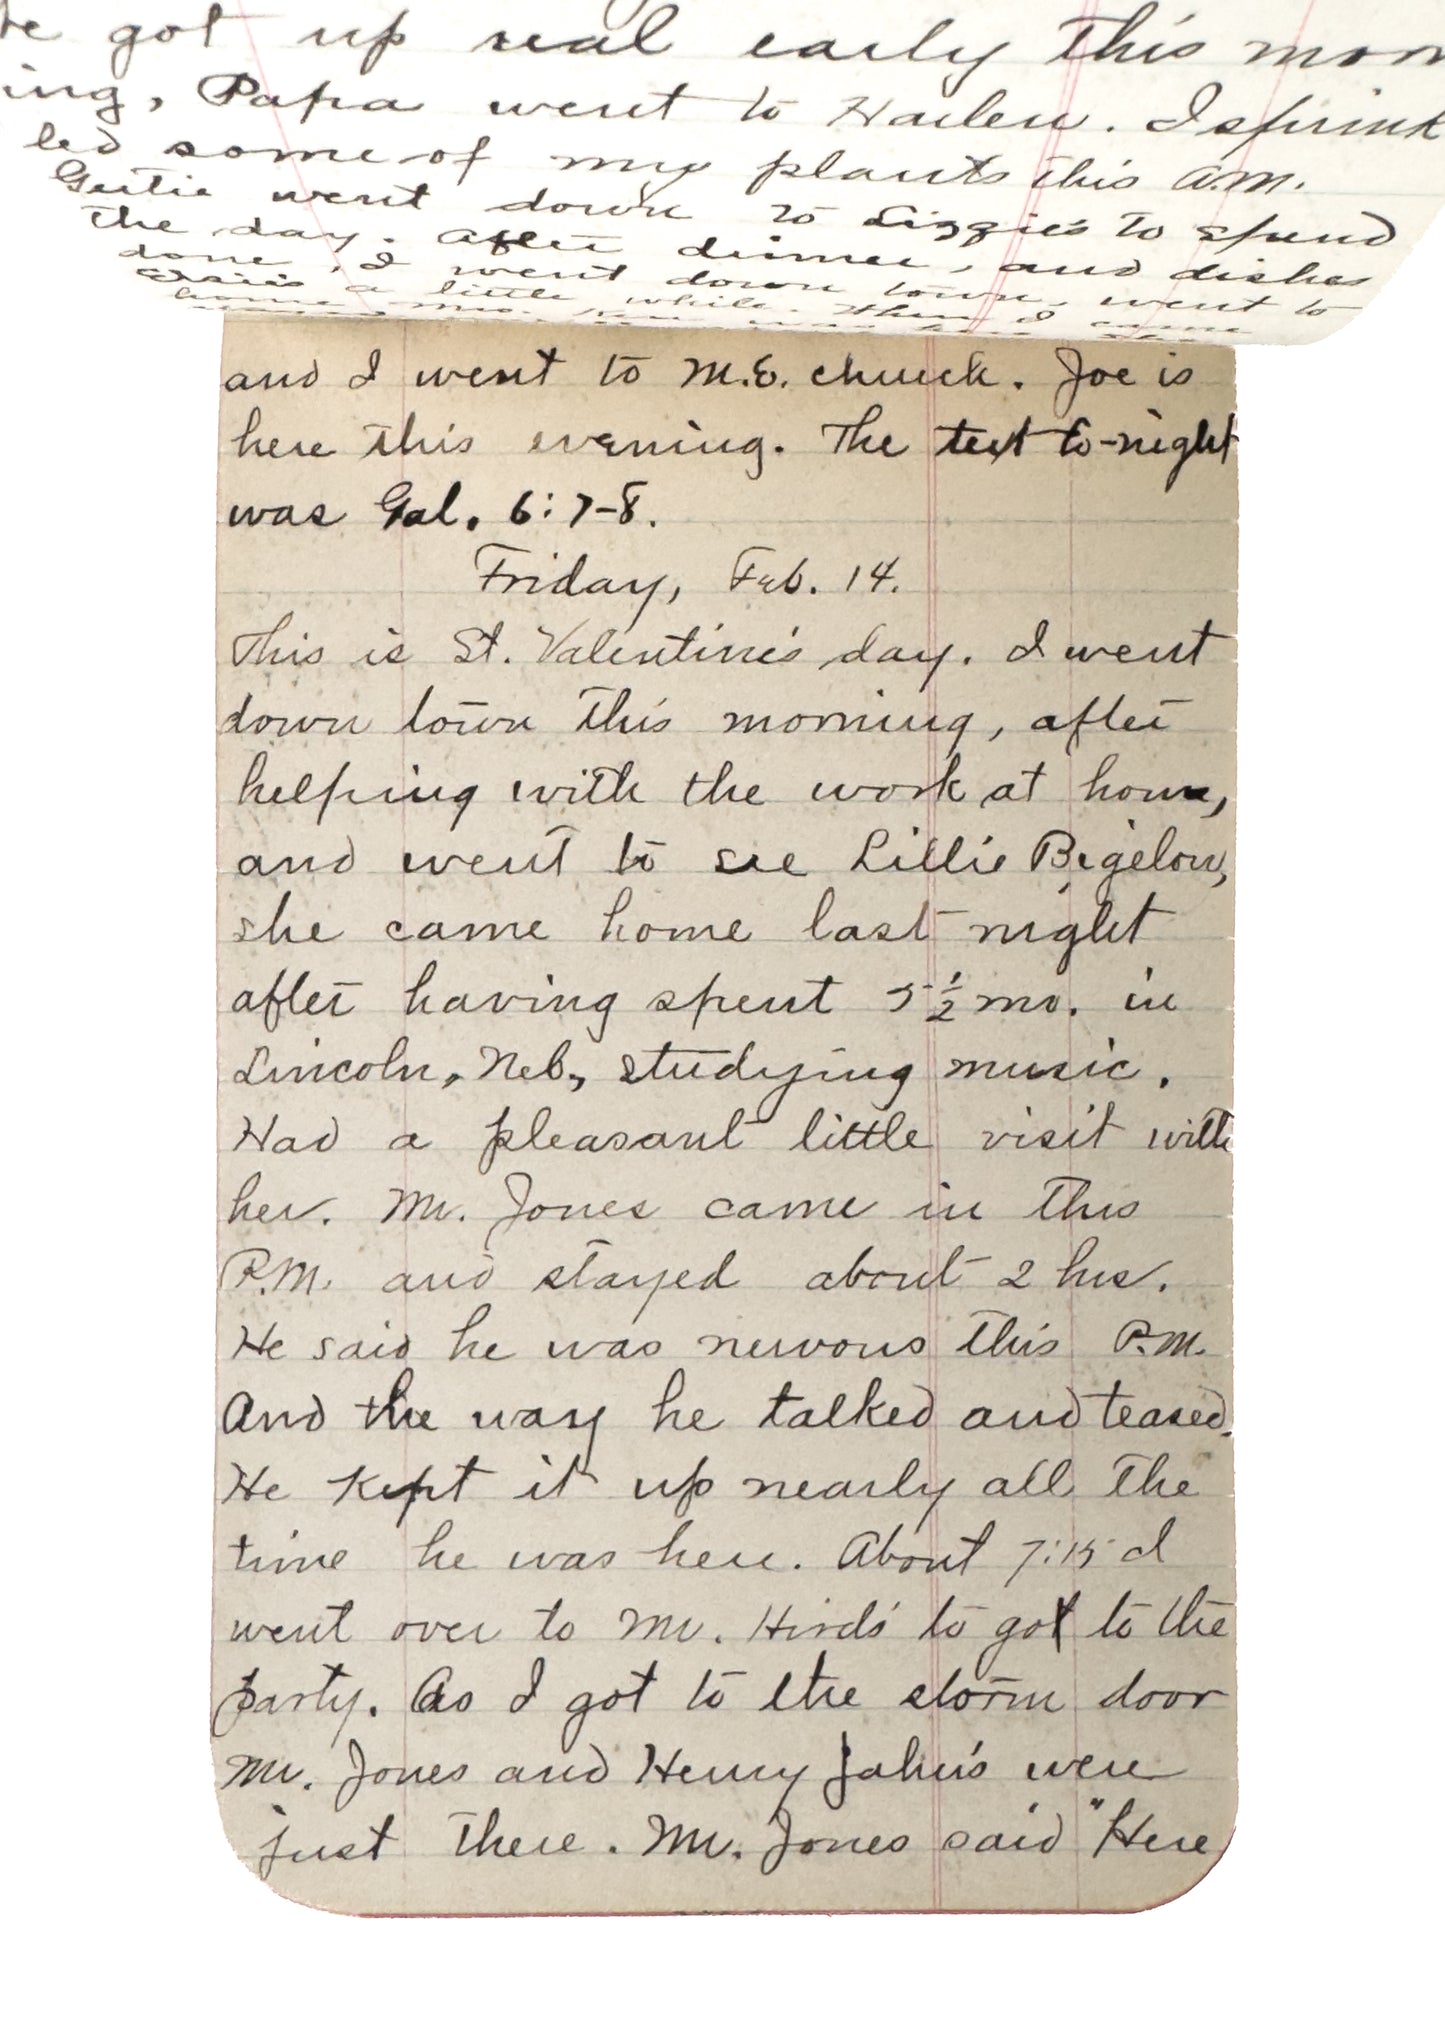 He got up real early this morn
ing, Papa went to Harlen. I sprink
led some of my plants this A.M.
Gertie went down to Lizzie's to spend
the day. After dinner, and dishes
done, I went down town, went to
a little while. Then I came
home
and I went to M.E. church. Joe is
here this evening. The text to-night
was Gal. 6:7-8.
Friday, Feb. 14.
This is St. Valentine's day. I went
down town this morning, after
helping with the work at home,
and went to see Lillie Bigelow,
she came home last night
after having spent 5½ mo. in
Lincoln, Neb., studying music.
Had a pleasant little visit with
her. Mr. Jones came in this
P.M. and stayed about 2 hrs.
He said he was nervous this P.M.
And the way he talked and teased.
He kept it up nearly all the
time he was here. About 7:15 I
went over to Mr. Hird's to got to the
party. As I got to the storm door
Mr. Jones and Henry Jahn's were
just there. Mr. Jones said "Here